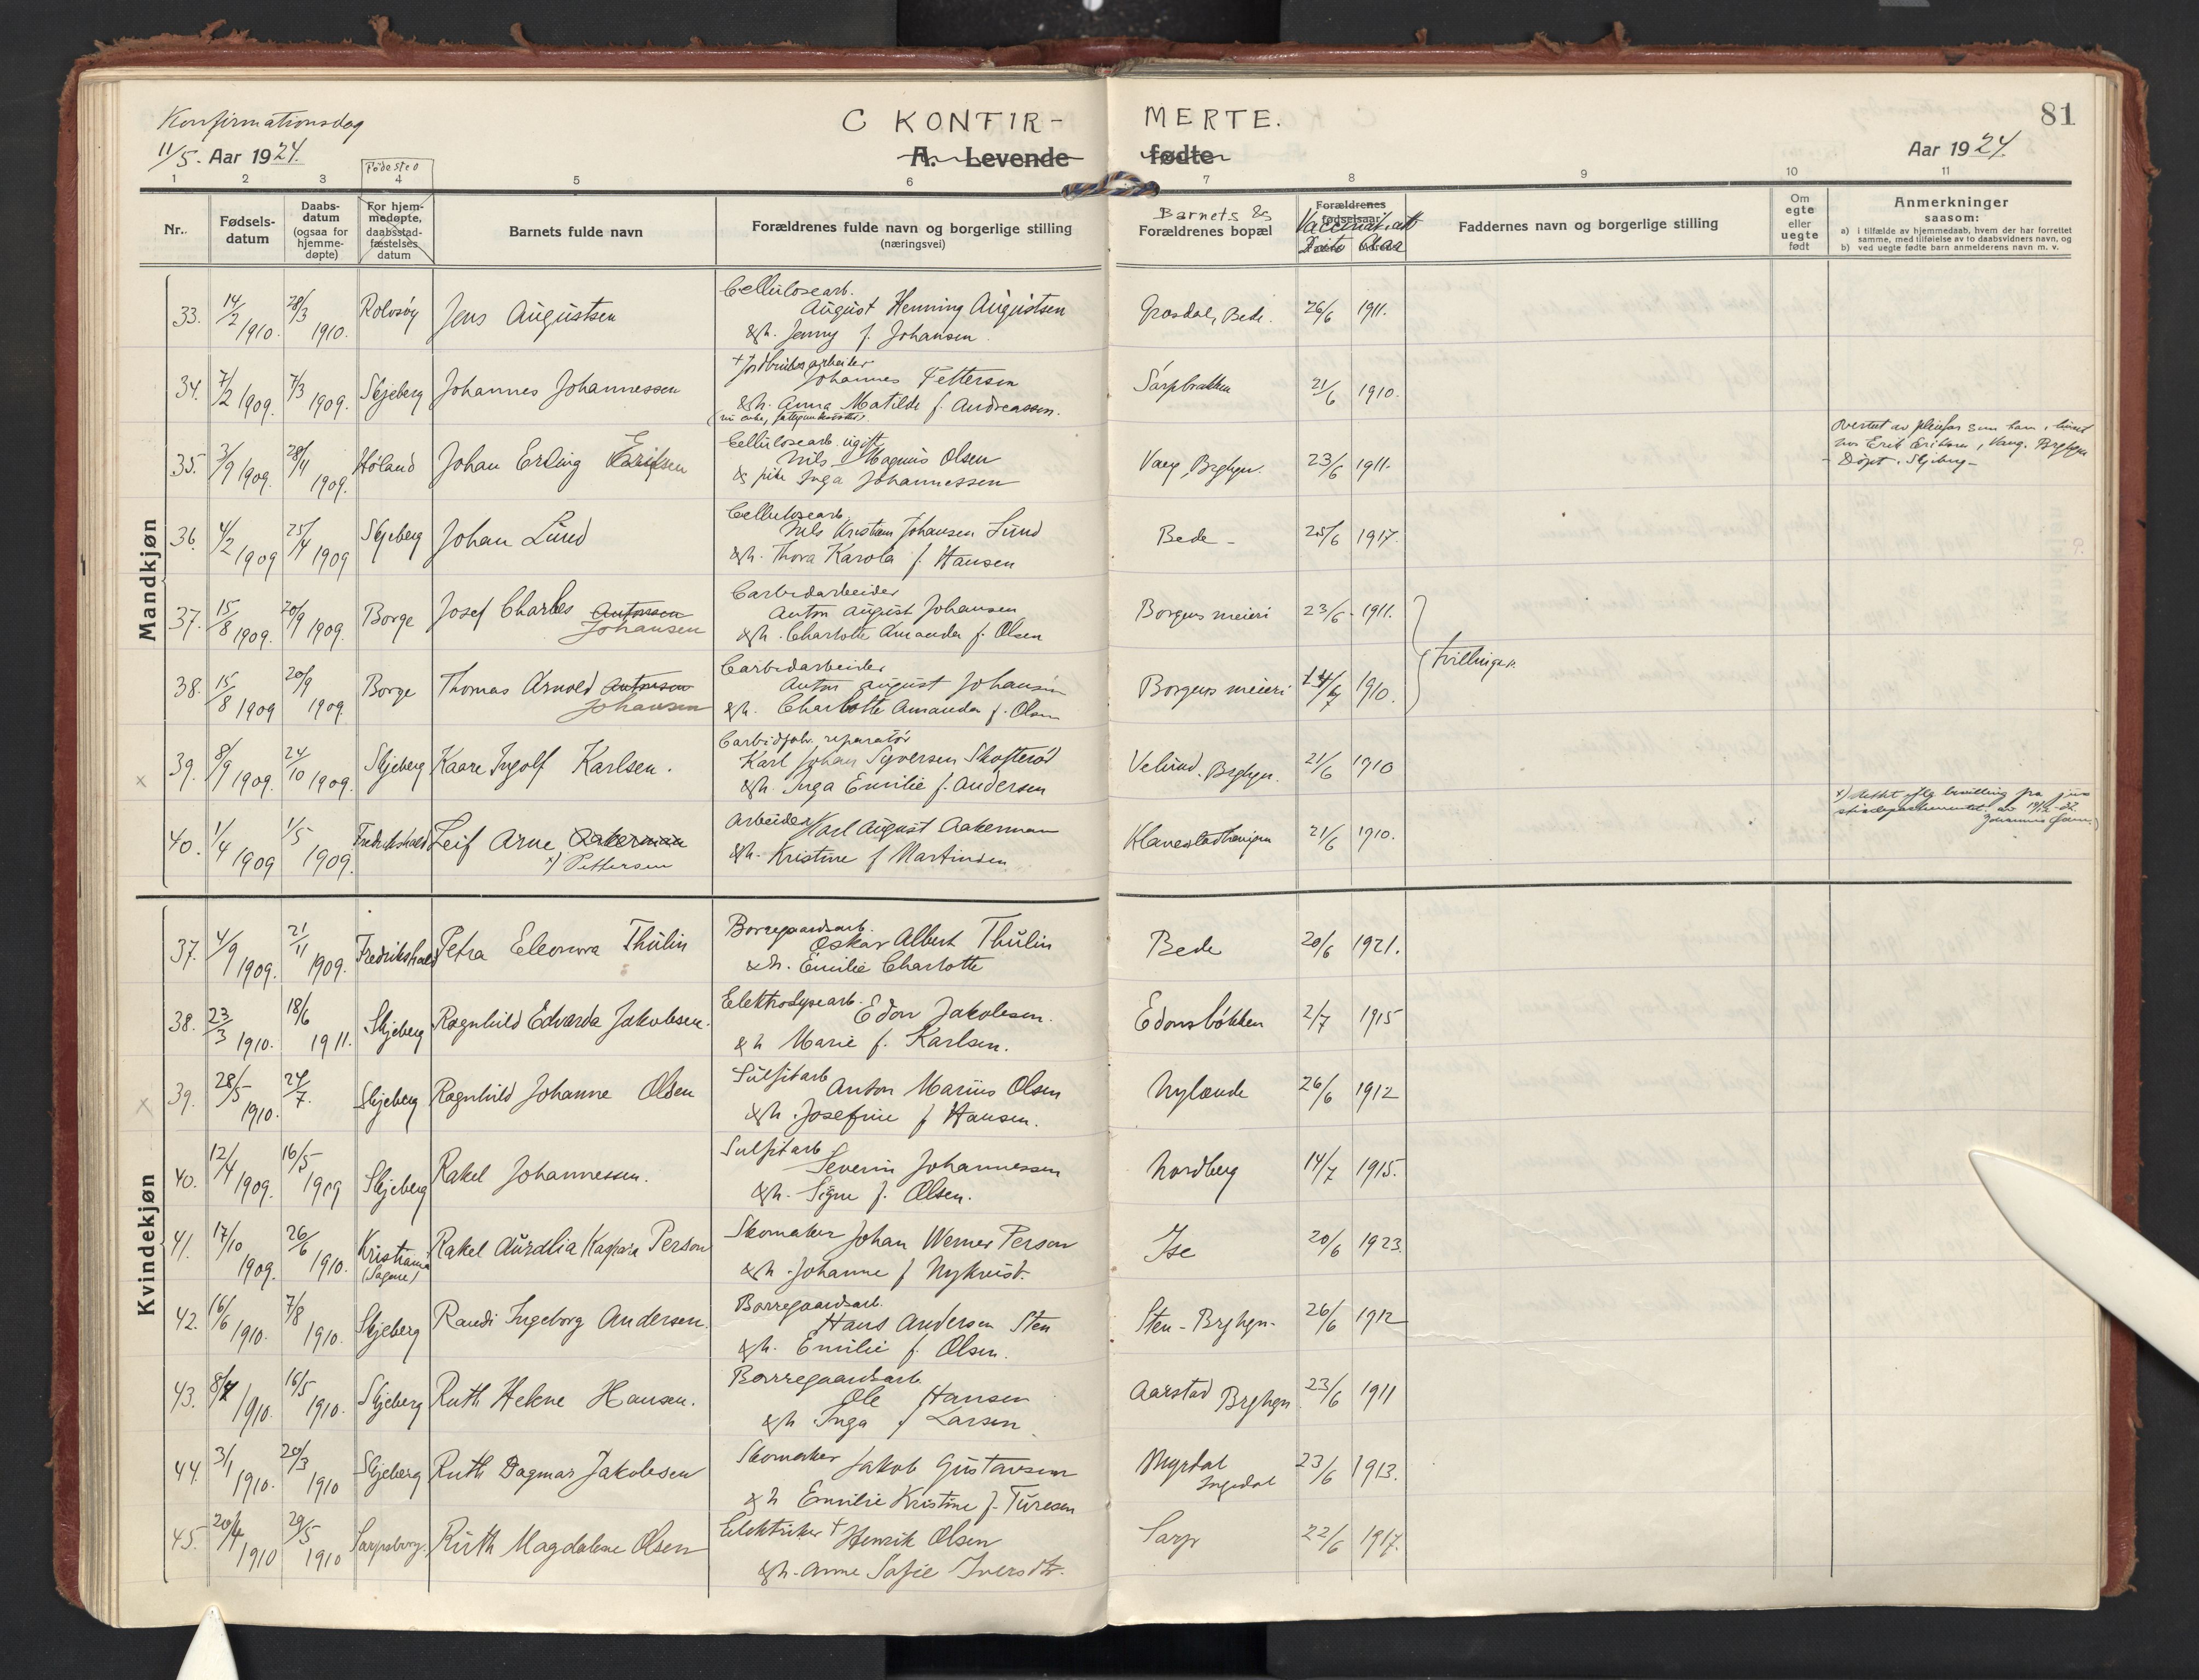 Konfirmationsdag
C KONFIR-
MERTE.
81
11/5. Aar 1924.
A. Levende
fødte
Aar 1924.
Fødested
1 2 3 4 5 6 7 8 9 10 11
Nr.
Fødsels-
datum
Daabs-
datum
(ogsaa for
hjemme-
døpte)
For hjem-
medøpte,
daabsstad-
fæstelses
datum
Barnets fulde navn
Forældrenes fulde navn og borgerlige stilling
(næringsvei)
Barnets &
Forældrenes bopæl
Forældrenes
fødselsaar
Vaccinat. att
Dato Aar
Faddernes navn og borgerlige stilling
Om
egte
eller
uegte
født
Anmerkninger
saasom:
a) i tilfælde av hjemmedaab, hvem der har forrettet
samme, med tilføielse av to daabsvidners navn, og
b) ved uegte fødte barn anmelderens navn m. v.
Mandkjøn
33. 14/2 1910. 28/3 1910. Rolvsøy Jens Augustsen
Cellulosearb.
August Henning Augustsen
& h. Jenny f. Johansen
Grosdal, Bede. 26/6 1911.
34. 7/2 1909. 7/3 1909. Skjeberg Johannes Johannessen
+ Jordbruksarbeider
Johannes Pettersen
& h. Anna Matilde f. Andreassen.
Sarpbakken 21/6 1910.
35. 3/9 1909. 28/4 1909. Høland Johan Erling Eriksen
Cellulosearb. ugift
Nils Magnus Olsen
& pike Inga Johannessen
Vang, Brghgn. 23/6 1911.
hos Erik Eriksen, Vang. Brghgn
- Døpt i Skjeberg -
36. 4/2 1909 25/4 1909 Skjeberg Johan Lund
Cellulosearb.
Nils Kristian Johansen Lund
& h. Thora Karola f. Hansen
Bede - 25/6 1917.
37. 15/8 1909. 20/9 1909. Borge Josef Charles Antonsen
Johansen
Carbidarbeider
Anton August Johansen
& h. Charlotte Amanda f. Olsen
Borgens meieri 23/6 1911.
Tvillinger.
38. 15/8 1909 20/9 1909. Borge Thomas Arnold Antonsen
Johansen
Carbidarbeider
Anton August Johansen
& h. Charlotte Amanda f. Olsen
Borgens meieri 1910.
x 39. 8/9 1909. 24/10 1909. Skjeberg Kaare Ingolf Karlsen.
Carbidfab. reparatør
Karl Johan Syversen Skofterød
& h. Inga Emilie f. Andersen
Velund. Brghgn. 21/6 1910
40. 1/4 1909 1/5 1909. Fredrikshald Leif Arne Aakerman
x) Pettersen
Arbeider Karl August Aakerman
& h. Kristine f Martinsen
Klavestadhaugen 21/6 1910.
x) Rettet iflg bevilling fra jus
Kvindekjøn
37. 4/9 1909. 21/11 1909. Fredrikshald Petra Eleonora Thulin
Borregaardsarb.
Oskar Albert Thulin
& h. Emilie Charlotte
Bede 20/6 1921.
38. 23/3 1910. 18/6 1911. Skjeberg Ragnhild Edvarda Jakobsen.
Elektrolysearb. Edon Jakobsen.
& h Marie f. Karlsen.
Edonsløkken 2/7 1915
x 39. 28/5 1910. 24/7. Skjeberg Ragnhild Johanne Olsen
Sulfitarb Anton Marius Olsen
& h. Josefine f Hansen.
Nylænde 26/6 1912
40. 12/4 1909. 16/5 1909 Skjeberg Rakel Johannessen.
Sulfitarb
Severin Johannessen
& h. Signe f. Olsen.
Nordberg 14/7 1915.
41. 17/10 1909. 26/6 1910. Kristiania
(Sagene)
Rakel Aurdlia Kaspara Person
Skomaker Johan Werner Person
& h. Johanne f Nykvist.
Ise 20/6 1923.
42. 16/6 1910. 7/8 1910. Skjeberg Randi Ingeborg Andersen.
Borregaardsarb.
Hans Andersen Sten
& h. Emilie f. Olsen.
Sten - Brghgn - 26/6 1912
43. 8/4 1910. 16/5 1910. Skjeberg Ruth Helene Hansen.
Borregaardsarb
Ole Hansen
& h Inga f Larsen
Aarstad Brghgn 23/6 1911
44. 3/1 1910. 20/3 1910 Skjeberg Ruth Dagmar Jakobsen
Skomaker Jakob Gustavsen
& h Emilie Kristine f. Turesen
Myrdal
Ingedal
23/6 1913.
45. 20/4 1910 29/5 1910 Sarpsborg. Ruth Magdalene Olsen
Elektriker + Henrik Olsen
& h. Anne Sofie
Sarp 22/6 1917.